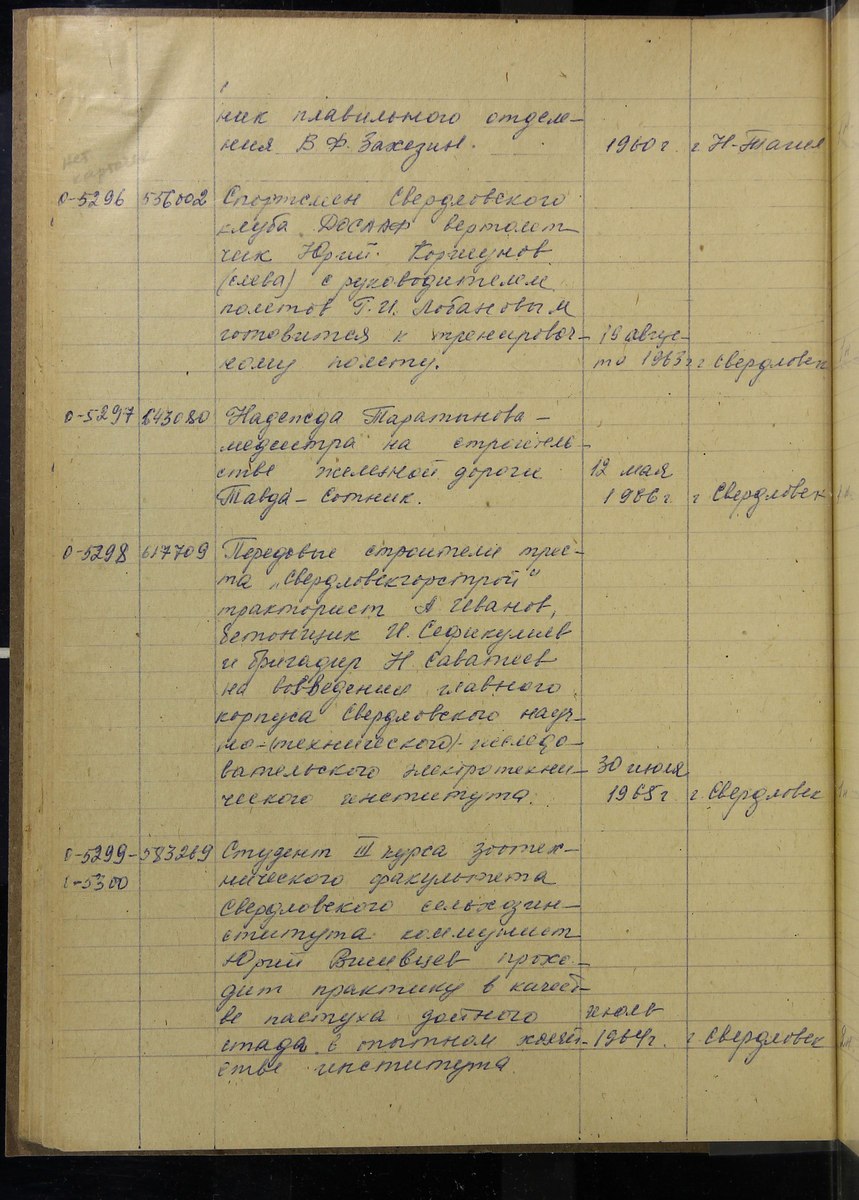 ник плавильного отделе-
ния В Ф. Захезин. 1960 г. г Н-Тагил
нет
карточки
0-5296 556002 Спортсмен Свердловского
клуба ДОСААФ вертолет-
чик Юрий Коршунов
(слева) с руководителем
полетов Г. И. Лобановым
готовится к тренировоч- 19 авгус-
ному полету. та 1963 г г Свердловск
0-5297 643080 Надежда Таратынова -
медсестра на строитель-
стве железной дороги 12 мая
Тавда - Сотник. 1966 г. г Свердловск
0-5298 617709 Передовые строители трес-
та „Свердловскгорстрой“
тракторист А Иванов,
бетонщик И. Сефикулиев
и бригадир Н. Саватеев
на возведении главного
корпуса Свердловского науч-
но-(технического)-исследо-
вательского электротехни- 30 июля
ческого института. 1965 г г Свердловск
0-5299- 583269 Студент III курса зоотех-
0-5300 нического факультета
Свердловского сельхозин-
ститута коммунист
Юрий прохо-
дит практику в качест-
ве пастуха дойного июль
стада в опытном хозяй- 1964 г. г Свердловск
стве института.